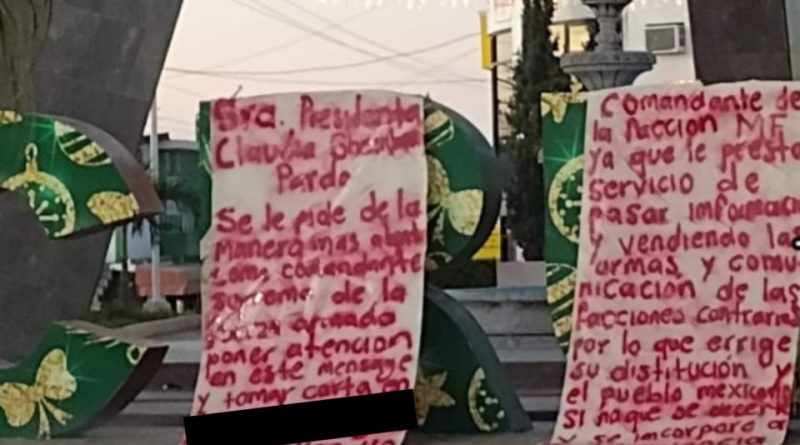 Sra. Presidenta
Claudia
Pardo
Se le pide de la
manera mas
como comandante
de la
poner atencion
en este mensage
y tomar carta en
Comandante de
la faccion MF
ya que le presto
servicio de
pasar informaci
y vendiendo las
armas y comu
nicación de las
facciones contrarias
por lo que errige
su distitución y
el pueblo mexicano
si
se incorpora a